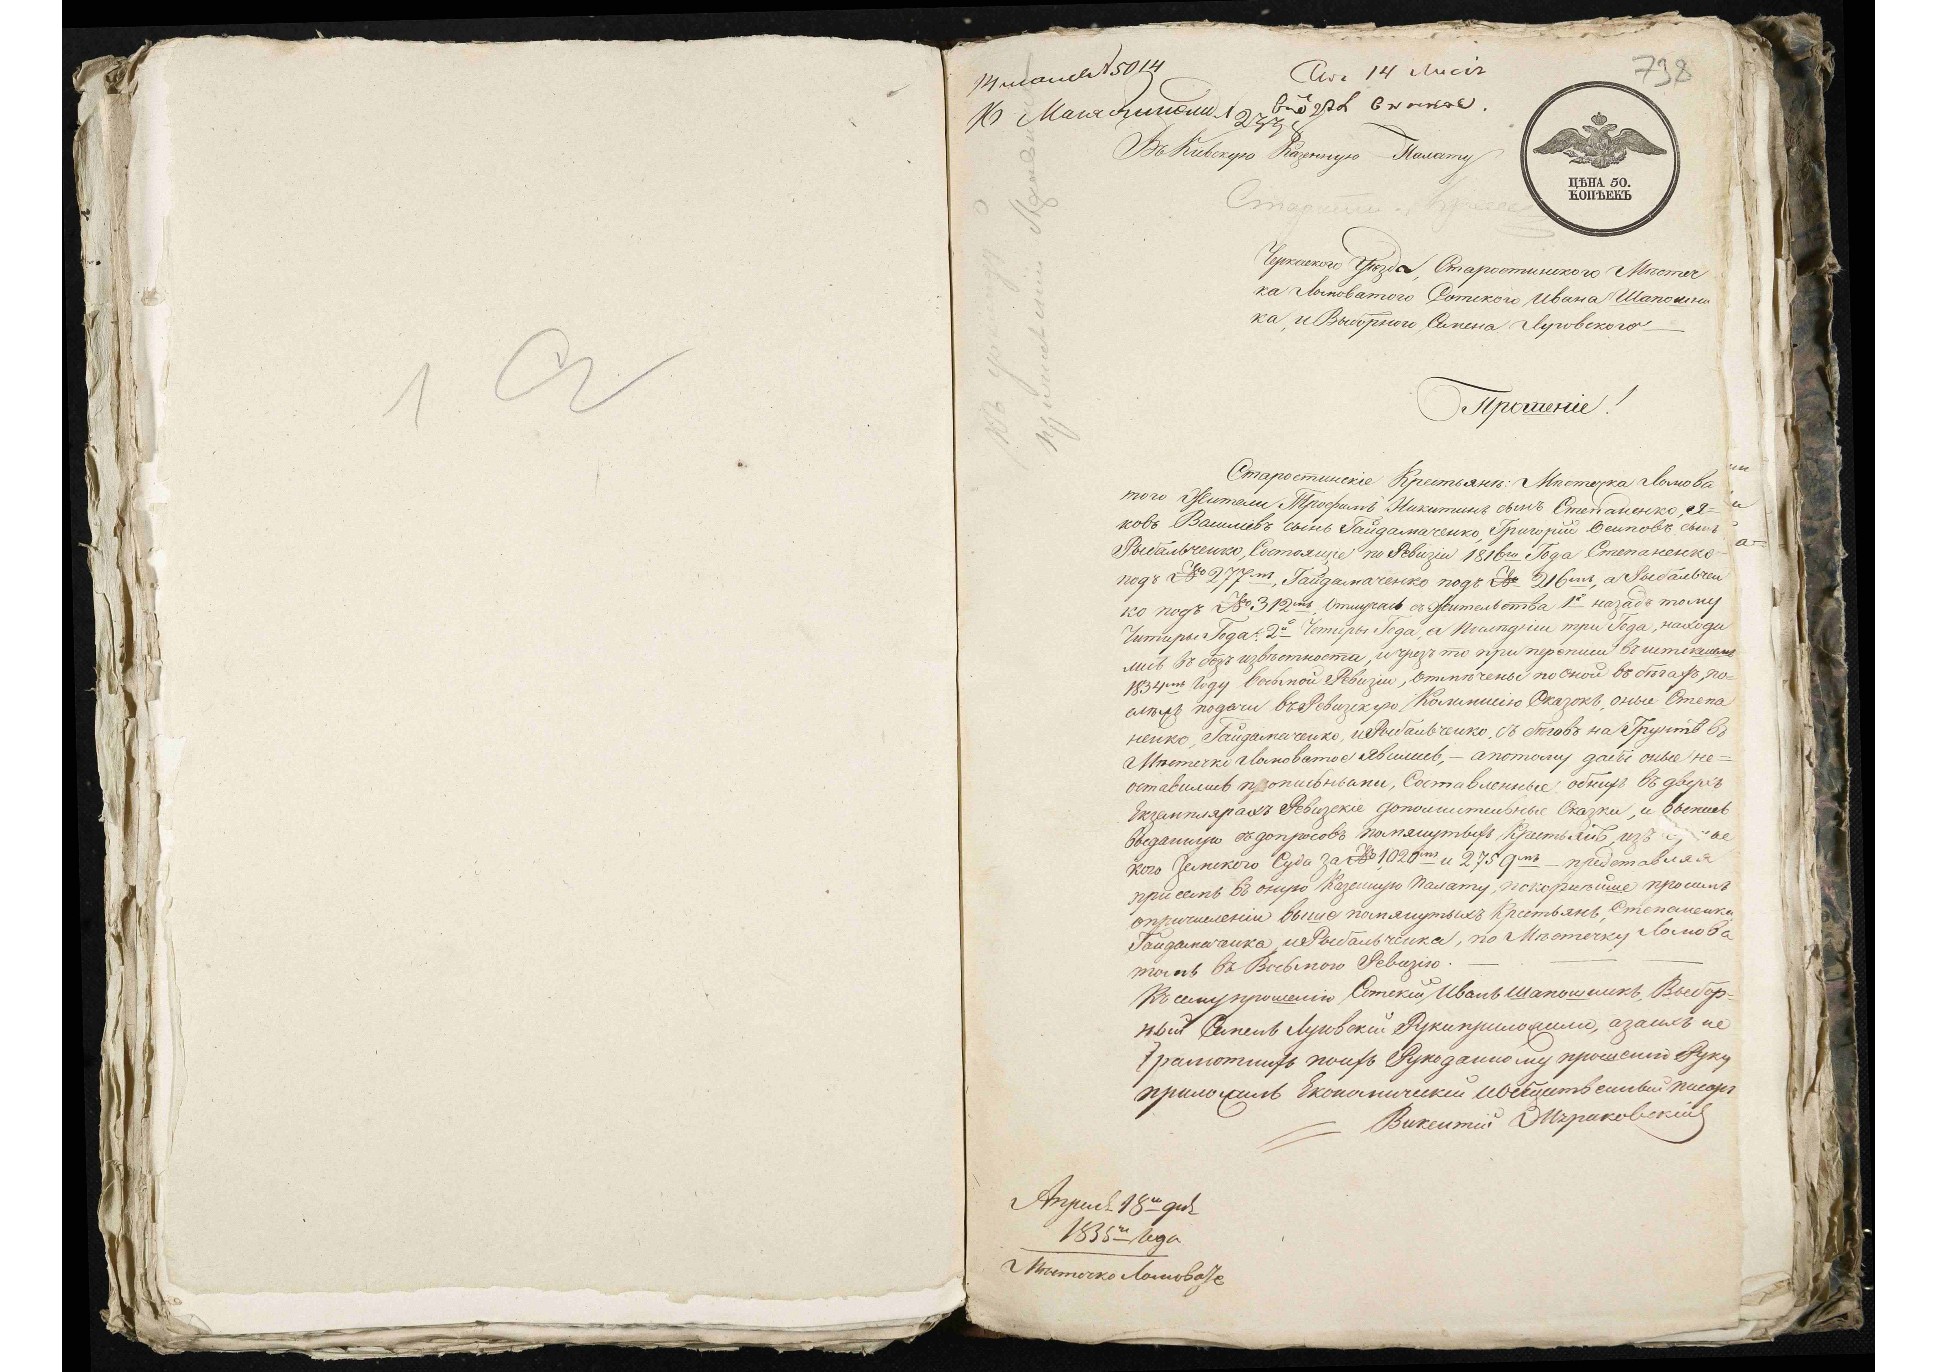 738
14 мая № 5014
14
Въ Кіевскую Казенную Палату
ЦѢНА 50.
КОПѢЕКЪ
Черкаского Уѣзда, Старостинского Мѣстеч
ка Ломоватого Сотского Ивана Шапошни
ка, и Выборного Семена Луговского
Прошеніе!
Старостинскіе Крестьяне: Мѣстечка Ломова
того Жители Трофимъ Никитинъ сынъ Степаненко, Я=
ковъ Васильевъ сынъ Гайдамаченко, Григорій Осиповъ сынъ
Рыбальченко, Состоящіе по Ревизіи 1816го Года Степаненко
подъ № 277мъ, Гайдамаченко подъ № 216мъ, а Рыбальчен
ко подъ № 312мъ, отлучась съ жительства 1й назадъ тому
Читыри Года, 2й Четыри Года, а Послѣдній три Года, находи
лись въ безъизвѣстности, и чрезъ то при переписи въ
1834мъ Году восьмой Ревизіи, отмѣчены по оной въ бѣгахъ, по=
слѣ подачи въ Ревизскую Коммисію Сказокъ, оные Степа
ненко, Гайдамаченко, и Рыбальченко, съ бѣговъ на Грунтъ въ
Мѣстечко Ломоватое явились, — а потому дабы оные не=
оставались прописными, Составленные объ нихъ въ двухъ
Екземплярахъ Ревизскіе дополнительные Сказки, и
выданную съ допросовъ помянутыхъ Крестьянъ, изъ
кого Земского Суда за № 1020мъ и 2759мъ — представляя
при семъ въ оную Казенную Палату, покорнѣйше просимъ
опричисленіи выше помянутыхъ Крестьянъ, Степаненка
Гайдамаченка, и Рыбальченка, по Мѣстечку Ломова
томъ въ Восьмую Ревизію.
Къ сему прошенію Сотскій Иванъ Шапошникъ, Выбор=
ный Семенъ Луговскій Руки приложили, а за ихъ не
грамотныхъ поихъ Рукоданному прошенію Руку
приложилъ Економическій и общественный писарь
Викентій
Апрѣля 18го дня
1835го Года
Мѣстечко Ломоватое